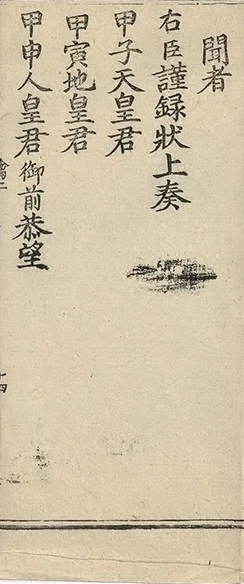 聞者
右臣謹録狀上奏
甲子天皇君
甲寅地皇君
甲申人皇君御前恭望
十四